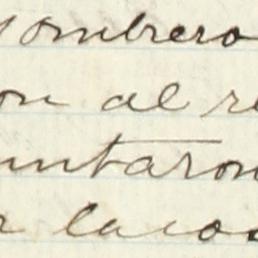 sombrero
on al re
untaron
r la cos